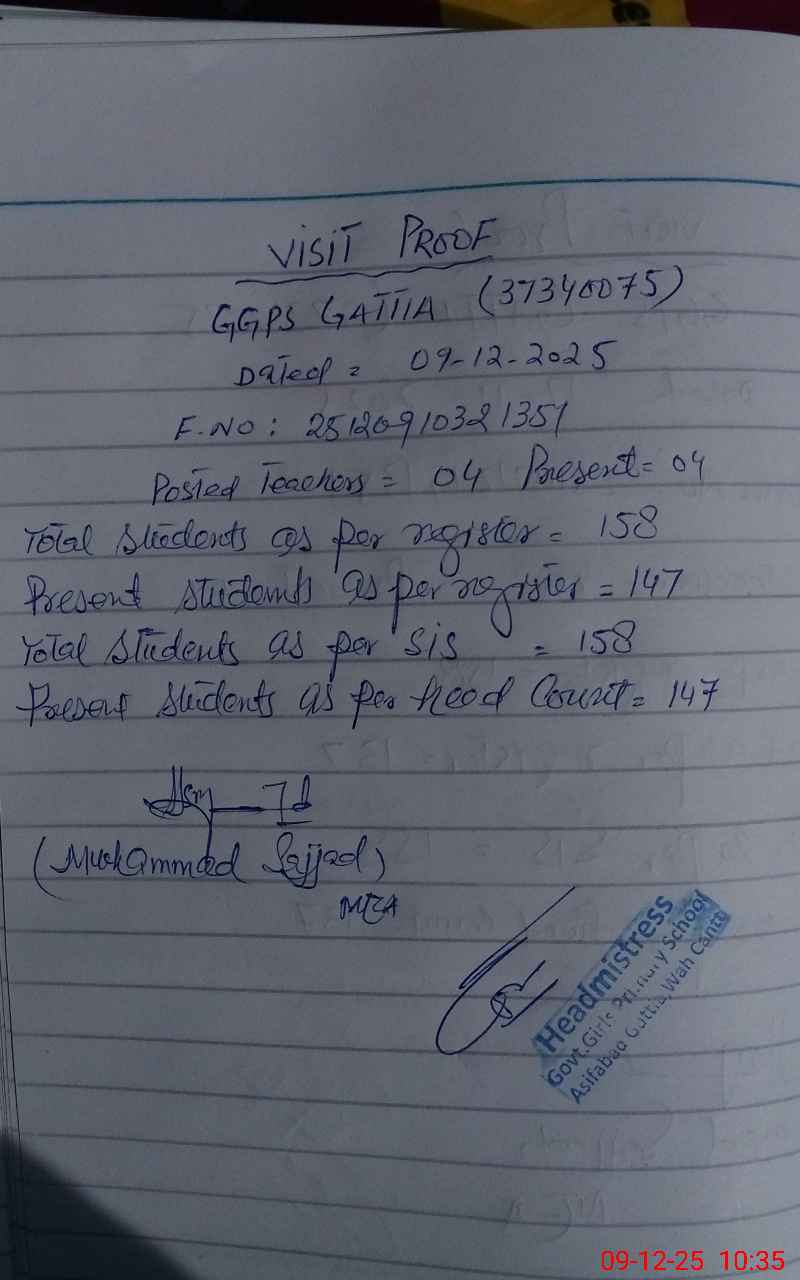 VISIT PROOF
GGPS GATTIA (37340075)
Dated = 09-12-2025
F.NO: 25120910321351
Posted Teachers = 04 Present = 04
Total Students as per register = 158
Present Students as per register = 147
Total Students as per SIS = 158
Present Students as per head Count = 147
(Muhammad Sajjad)
MEA
Headmistress
Govt.Girls Primary School
Asifabad Guttia, Wah Cantt
09-12-25 10:35